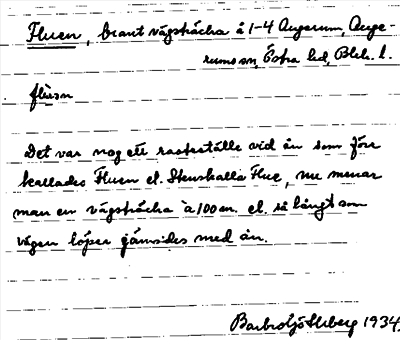 Fluen, brant vägsträcka å 1-4 Augerum, Auge-
rums sn, Östra hd, Blek. l.
flɯ̄en
Det var nog ett rasteställe vid ån som förr
kallades Fluen el. Stenkalla Flue, nu menar
man en vägsträcka à 100 m. el. så långt som
vägen löper jämsides med ån.
Barbro Sjöstberg 1934